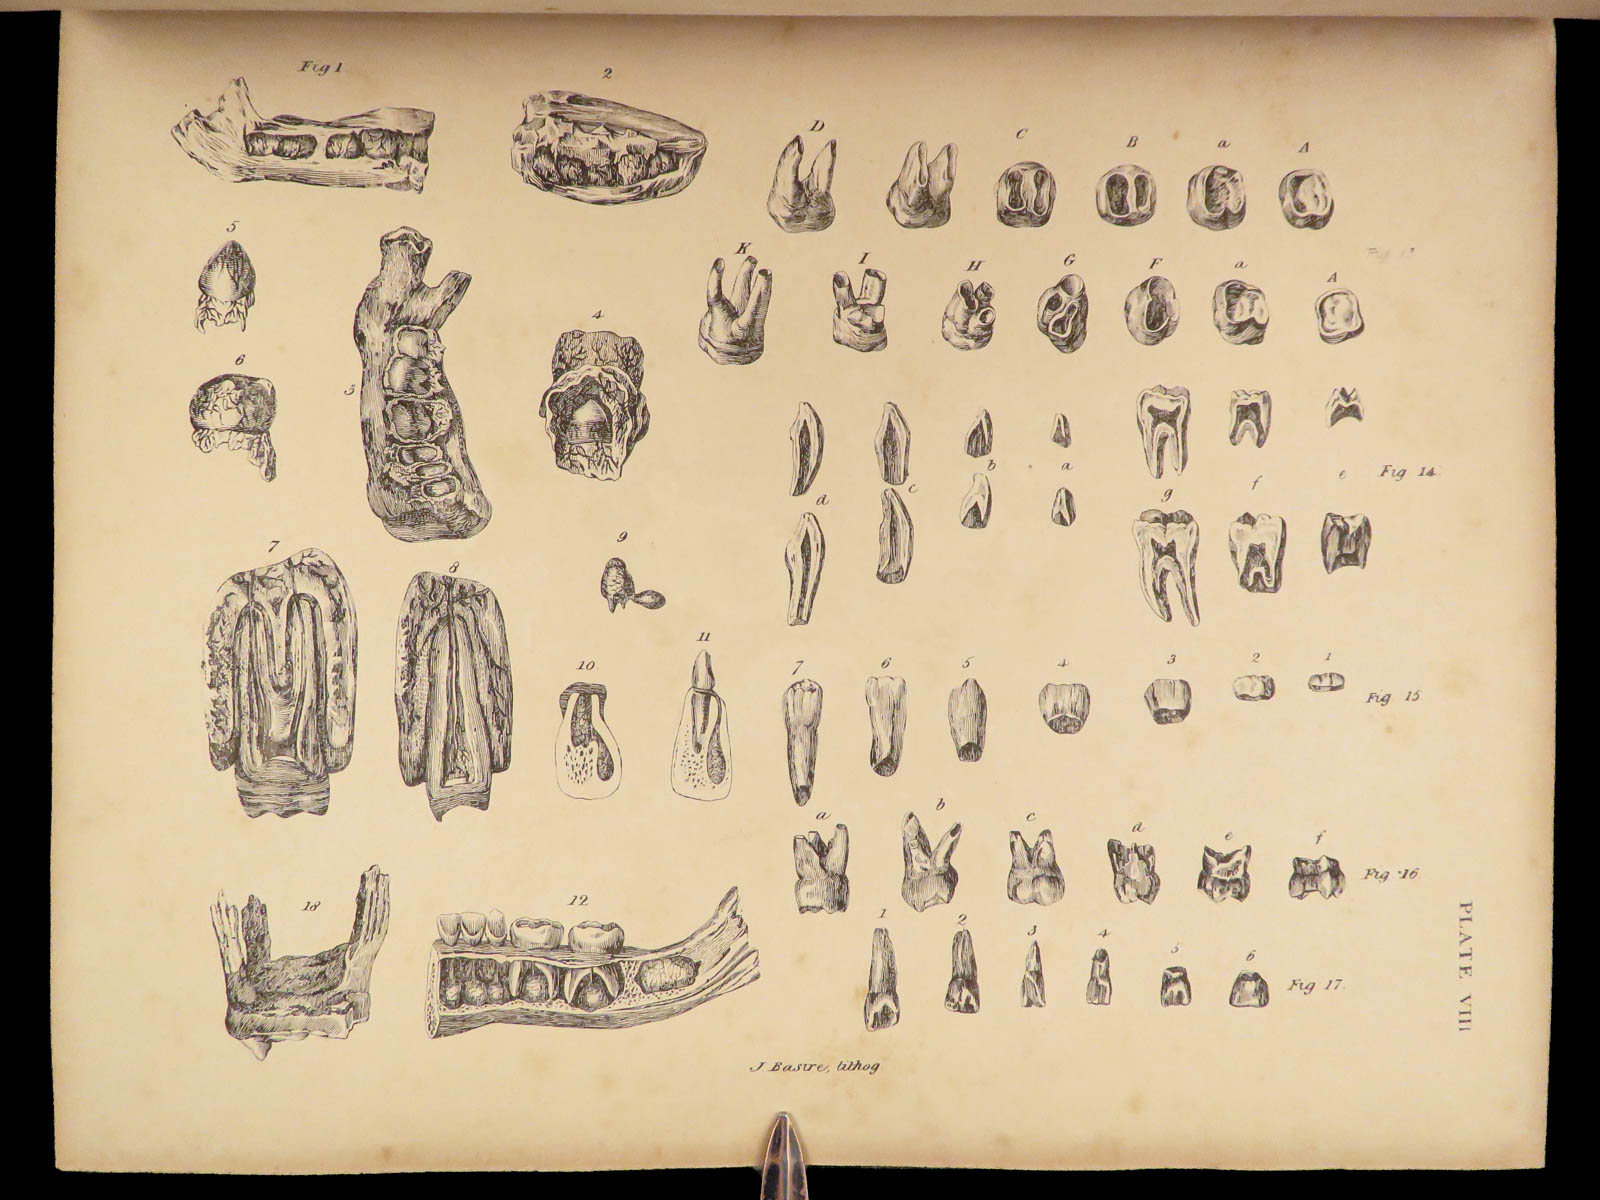 Fig 1
2
D
C
B
a
A
5
K
I
H
G
F
a
A
3
4
6
Fig 14
b
a
d
c
g
f
e
7
8
9
10.
11
7
6
5
4
3
2
1
Fig 15
a
b
c
d
e
f
Fig 16
18
12
1
2
3
4
5
6
Fig 17.
PLATE VIII
J Basire, lithog